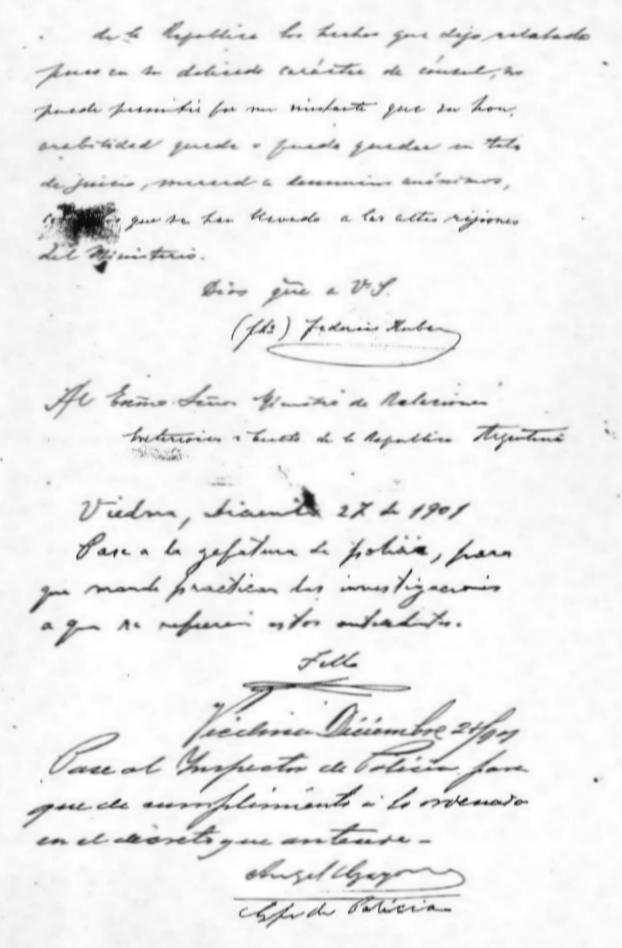 de la Republica los hechos que dejo relatado
pues en su delicado carácter de cónsul, no
puede permitir por un instante que su hon,
orabilidad quede o pueda quedar en tela
de juicio, merced a denuncias anónimas,
que se han llevado a las altas rejiones
del Ministerio.
Dios gūe a V.S.
(fdo) Federico
Al Exmo. Señor Ministro de Relaciones
Exteriores i Culto de la Republica Argentina
Viedma, Diciembre 27 de 1901
Pase a la gefatura de policia, para
que mande practicar las investigaciones
a que se refieren estos antecedentes.
Viedma Diciembre
Pase al Inspector de Policia para
que de cumplimiento á lo ordenado
en el decreto que antecede.-
Angel
Gefe de Policia